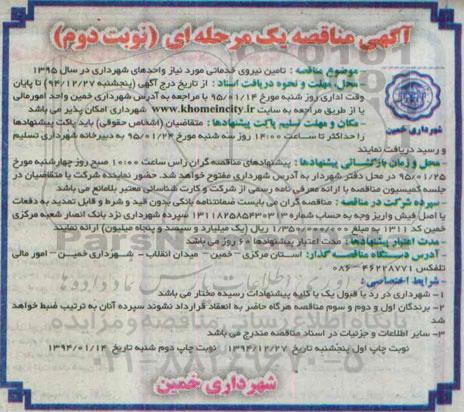 آگهی مناقصه یک مرحله ای (نوبت دوم)
موضوع مناقصه : تامین نیروی خدماتی مورد نیاز واحدهای شهرداری در سال ۱۳۹۵
محل، مهلت و نحوه دریافت اسناد : از تاریخ درج آگهی (پنجشنبه ۹۴/۱۲/۲۷) تا پایان
وقت اداری روز شنبه مورخ ۹۵/۰۱/۱۴ با مراجعه به آدرس شهرداری خمین واحد امورمالی
یا از طریق مراجعه به سایت www.khomeincity.ir شهرداری امکان پذیر می باشد
مکان و مهلت تسلیم پاکت پیشنهادها : متقاضیان (اشخاص حقوقی) باید پاکت پیشنهادها
را حداکثر تا ساعت ۱۴:۰۰ روز سه شنبه مورخ ۹۵/۰۱/۲۴ به دبیرخانه شهرداری تسلیم
شهرداری خمین
و رسید دریافت نمایند
محل و زمان بازگشائی پیشنهادها : پیشنهادهای مناقصه گران راس ساعت ۱۰:۰۰ صبح روز چهارشنبه مورخ
۹۵/۰۱/۲۵ در محل دفتر شهردار به آدرس شهرداری مفتوح خواهد شد. حضور نماینده شرکت یا متقاضیان در
جلسه کمیسیون مناقصه با ارائه معرفی نامه رسمی از شرکت و کارت شناسائی معتبر بلامانع می باشد
سپرده شرکت در مناقصه : مناقصه گران می بایست ضمانتنامه بانکی بدون قید و شرط و قابل تمدید به دفعات
یا اصل فیش واریز وجه به حساب شماره ۱۳۱۱۸۲۵۸۵۴۳۰۳۱۳ سپرده شهرداری نزد بانک انصار شعبه مرکزی
خمین کد ۱۳۱۱ به مبلغ ۱/۳۵۰/۰۰۰/۰۰۰ ریال (یک میلیارد و سیصد و پنجاه میلیون) ارائه نمایند
مدت اعتبار پیشنهادها : مدت اعتبار پیشنهادها ۶۰ روز می باشد
آدرس دستگاه مناقصه گذار: استان مرکزی – خمین – میدان انقلاب – شهرداری خمین – امور مالی
تلفکس ۴۶۲۲۸۷۷۱ – ۰۸۶
شرایط اختصاصی :
۱– شهرداری در رد یا قبول یک یا کلیه پیشنهادات رسیده مختار می باشد
۲– برندگان اول و دوم و سوم مناقصه هرگاه حاضر به انعقاد قرارداد نشوند سپرده آنان به ترتیب ضبط خواهد
شد
۳– سایر اطلاعات و جزئیات در اسناد مناقصه مندرج می باشد
نوبت چاپ اول پنجشنبه تاریخ ۱۳۹۴/۱۲/۲۷ نوبت چاپ دوم شنبه تاریخ ۱۳۹۴/۰۱/۱۴
شهرداری خمین